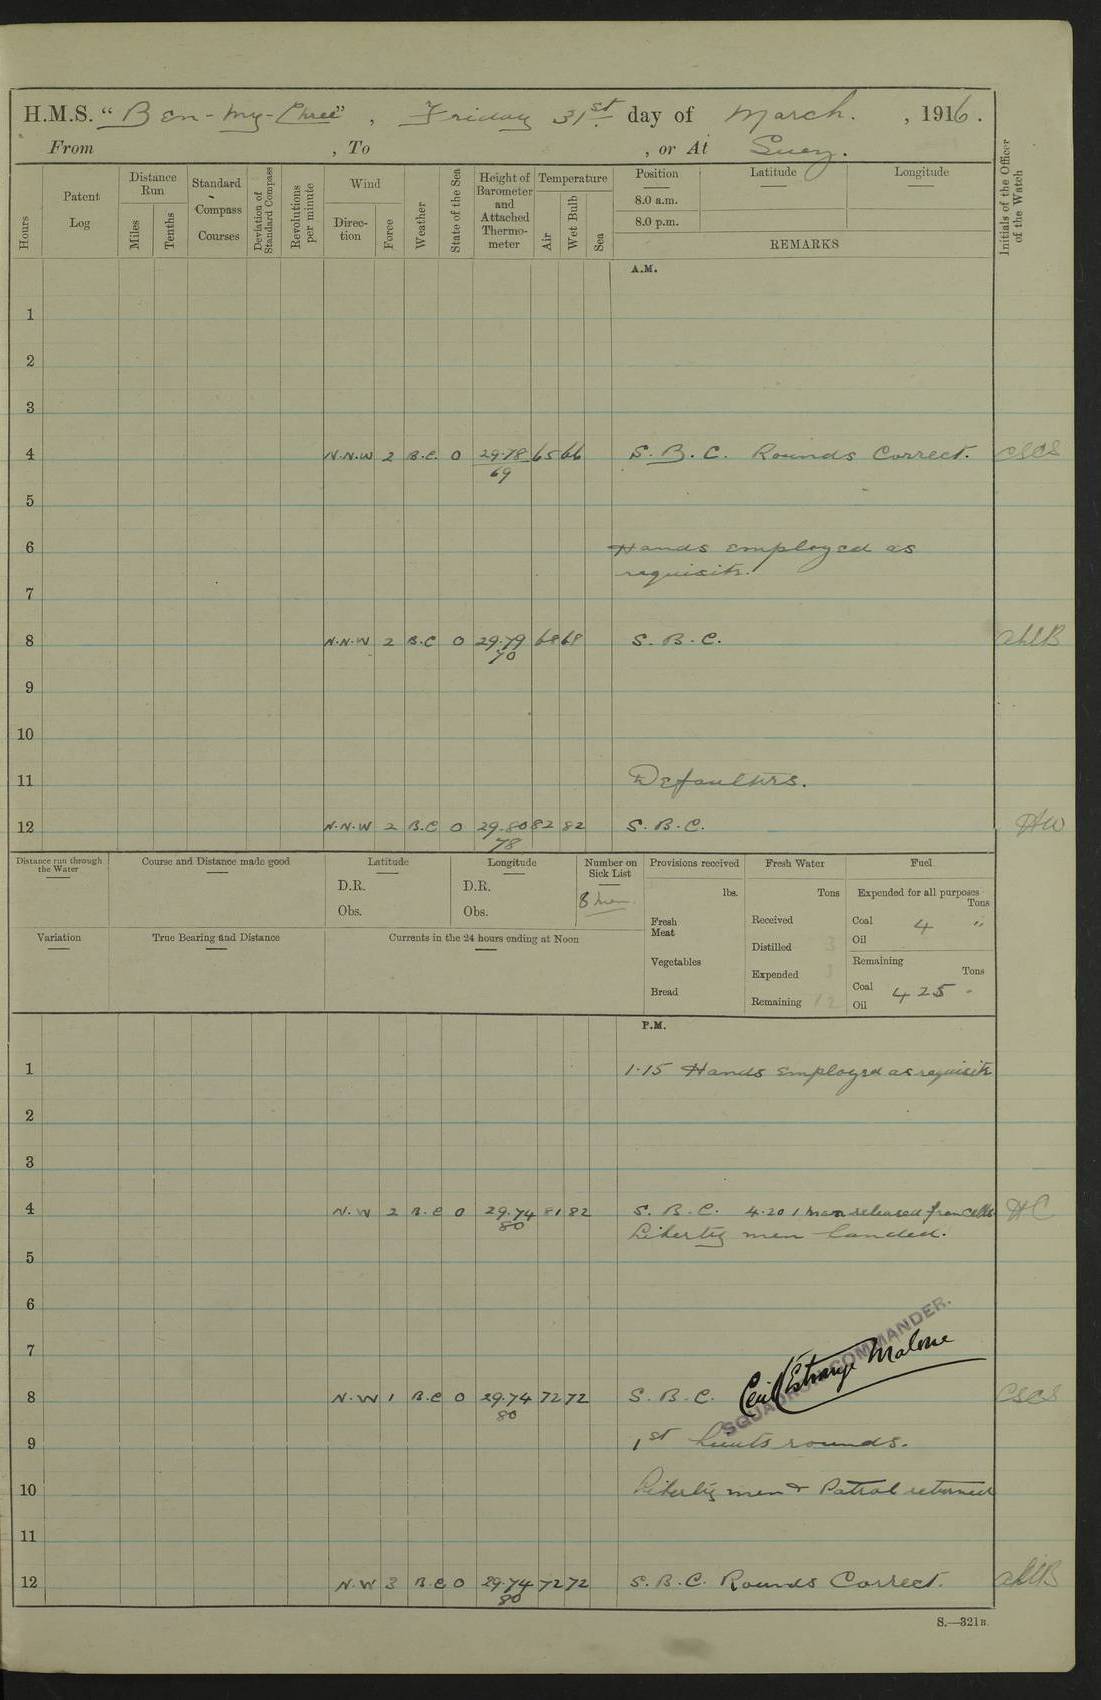 H.M.S. “Ben-my-Chree”, Friday 31st day of March., 1916.
From , To , or At Suez.
Hours
Patent Log
Distance Run
Miles
Tenths
Standard Compass Courses
Deviation of Standard Compass
Revolutions per minute
Wind
Direction
Force
Weather
State of the Sea
Height of Barometer and Attached Thermometer
Temperature
Air
Wet Bulb
Sea
Position
8.0 a.m.
8.0 p.m.
Latitude
Longitude
REMARKS
Initials of the Officer of the Watch
A.M.
1
2
3
4 N.N.W 2 B.C. 0 29.78 65 66 S.B.C. Rounds Correct. CSCS
69
5
6 Hands employed as
requisite.
7
8 N.N.W 2 B.C 0 29.79 68 68 S.B.C.
70
9
10
11 Defaulters.
12 N.N.W 2 B.C 0 29.80 82 82 S.B.C. HW
78
Distance run through the Water
Course and Distance made good
Latitude
D.R.
Obs.
Longitude
D.R.
Obs.
Number on Sick List
8 men
Provisions received
lbs.
Fresh Meat
Vegetables
Bread
Fresh Water
Tons
Received
Distilled 3
Expended 3
Remaining 12
Fuel
Expended for all purposes
Tons
Coal 4 "
Oil
Remaining
Tons
Coal 425 "
Oil
Variation
True Bearing and Distance
Currents in the 24 hours ending at Noon
P.M.
1 1.15 Hands employed as requisite
2
3
4 N.W 2 B.C 0 29.74 81 82 S.B.C. 4.20 1 man released from cells HC
80
Liberty men landed.
5
6
7
SQUADRON COMMANDER.
Cecil L'Estrange Malone
8 N.W 1 B.C 0 29.74 72 72 S.B.C. CSCS
80
9 1st Lieuts rounds.
10 Liberty men & Patrol returned
11
12 N.W 3 B.C 0 29.74 72 72 S.B.C. Rounds Correct.
80
S.—321B.